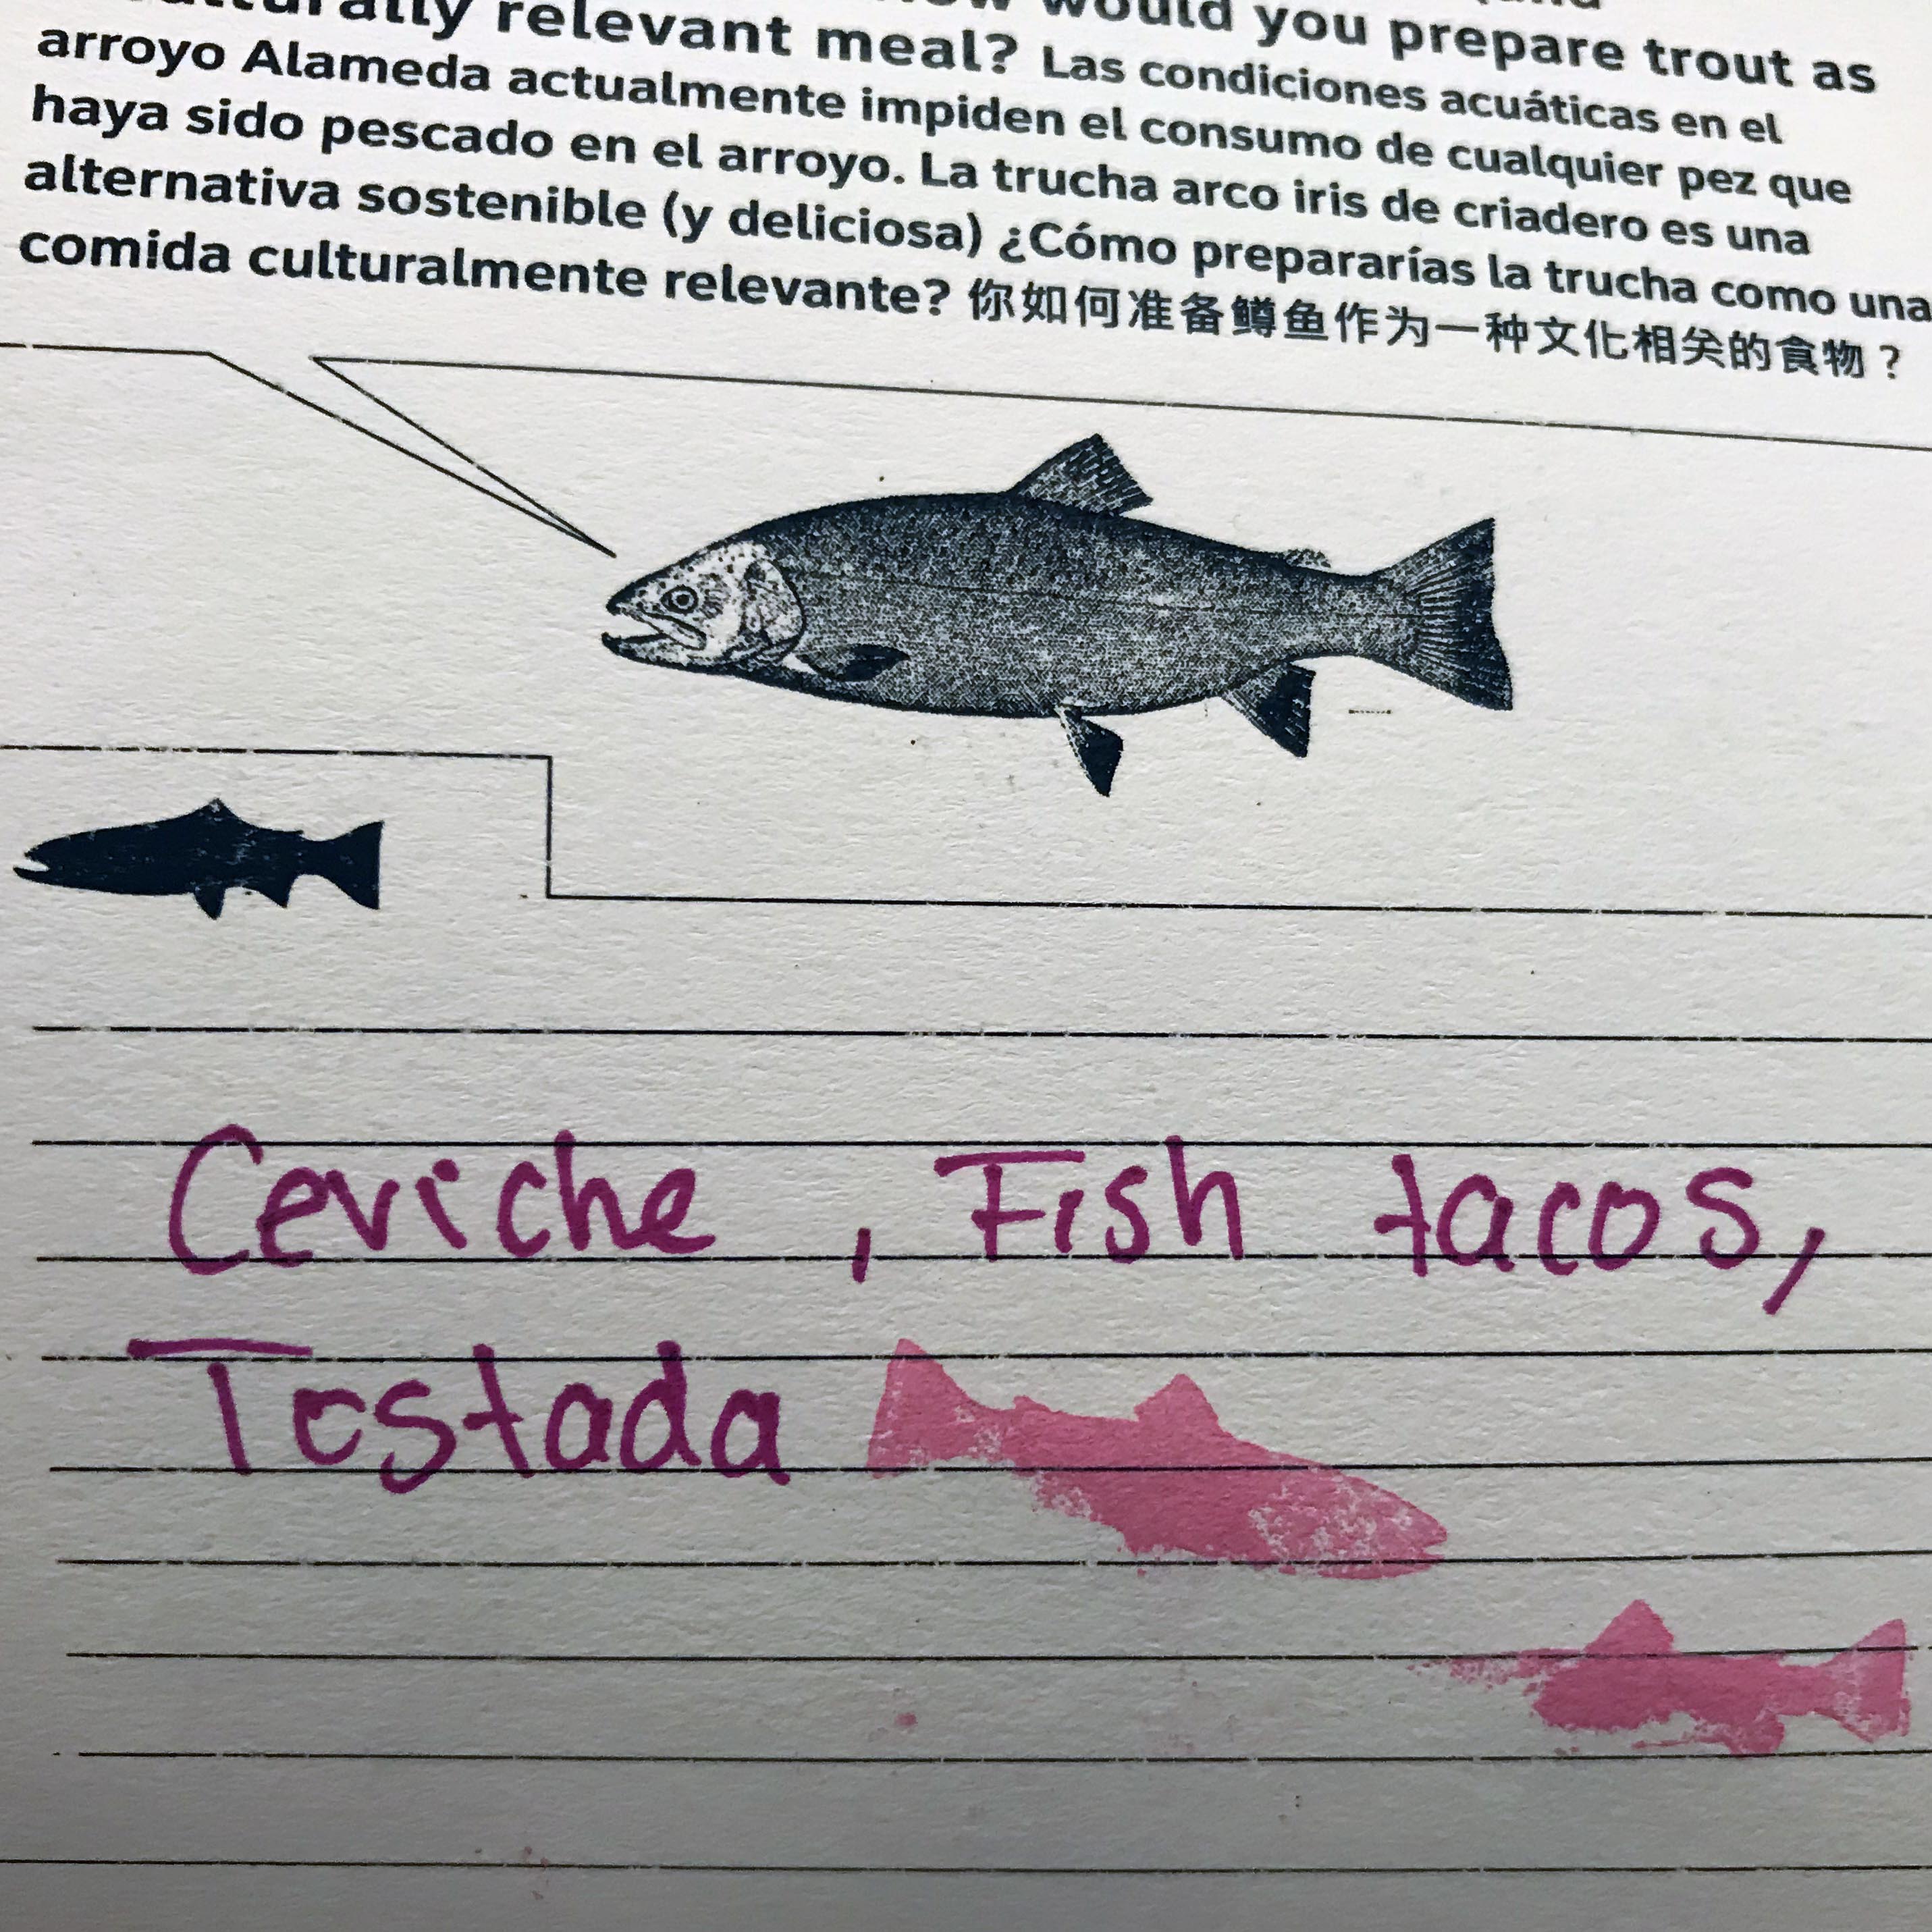 relevant meal? would you prepare trout as
Las condiciones acuáticas en el
arroyo Alameda actualmente impiden el consumo de cualquier pez que
haya sido pescado en el arroyo. La trucha arco iris de criadero es una
alternativa sostenible (y deliciosa) ¿Cómo prepararías la trucha como una
comida culturalmente relevante? 你如何准备鳟鱼作为一种文化相关的食物？
Ceviche, Fish tacos,
Tostada